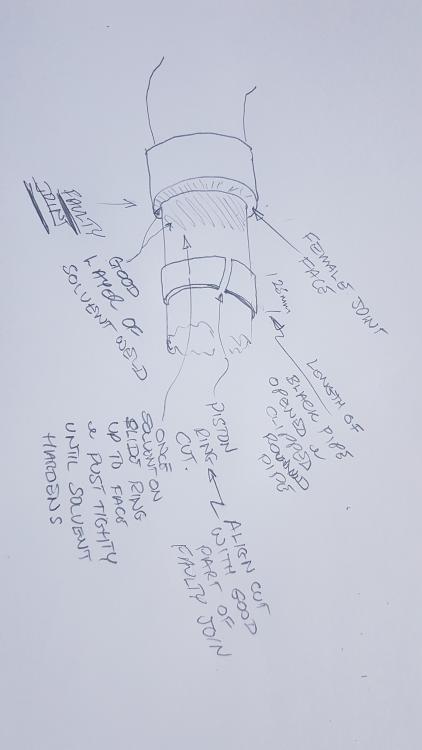 FAULTY
JOIN
GOOD
LAYER OF
SOLVENT WELD
FEMALE JOINT
FACE
1 25mm
LENGTH OF
BLACK PIPE
OPENED &
CLIPPED
ROUND
PIPE
PISTON
RING
CUT.
ALIGN CUT
WITH GOOD
PART OF
FAULTY JOIN
ONCE
SOLVENT ON
SLIDE RING
UP TO FACE
& PUST TIGHTLY
UNTIL SOLVENT
HARDENS